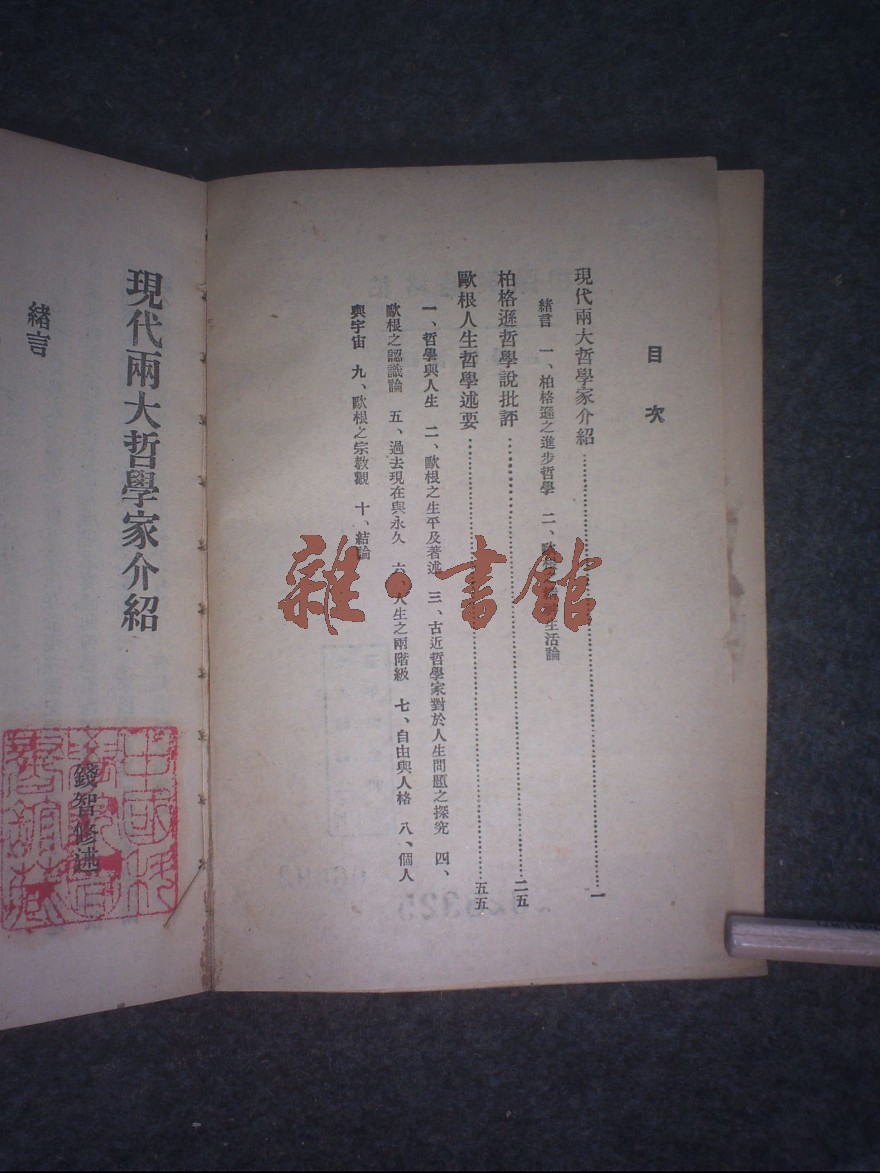 目次
現代兩大哲學家介紹……一
緒言　一、柏格遜之進步哲學　二、歐生活論
柏格遜哲學說批評……二五
歐根人生哲學述要……五五
一、哲學與人生　二、歐根之生平及著述　三、古近哲學家對於人生問題之探究　四、
歐根之認識論　五、過去現在與永久　六、人生之兩階級　七、自由與人格　八、個人
與宇宙　九、歐根之宗教觀　十、結論
現代兩大哲學家介紹
緒言
錢智修述
雜·書館